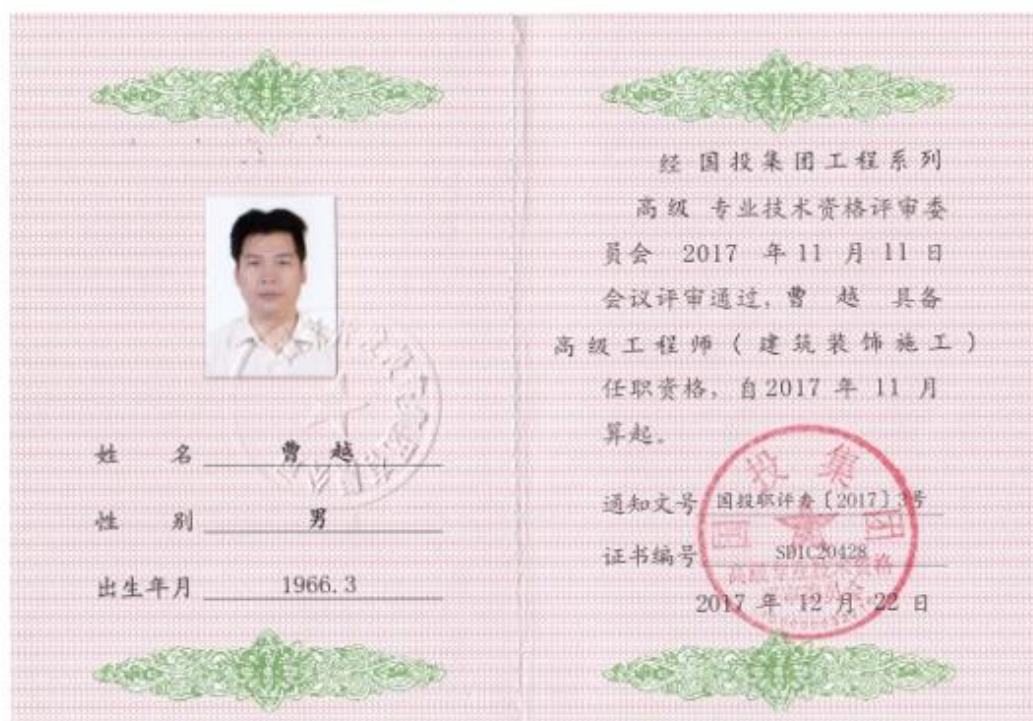 姓 名 曹 越
性 别 男
出生年月 1966.3
经 国投集团工程系列
高级 专业技术资格评审委
员会 2017 年 11 月 11 日
会议评审通过, 曹 越 具备
高级工程师（建筑装饰施工）
任职资格, 自2017 年 11 月
算起。
通知文号 国投职评委〔2017〕3号
证书编号 SDIC20428
2017 年 12 月 22 日
国投集团
高级专业技术资格